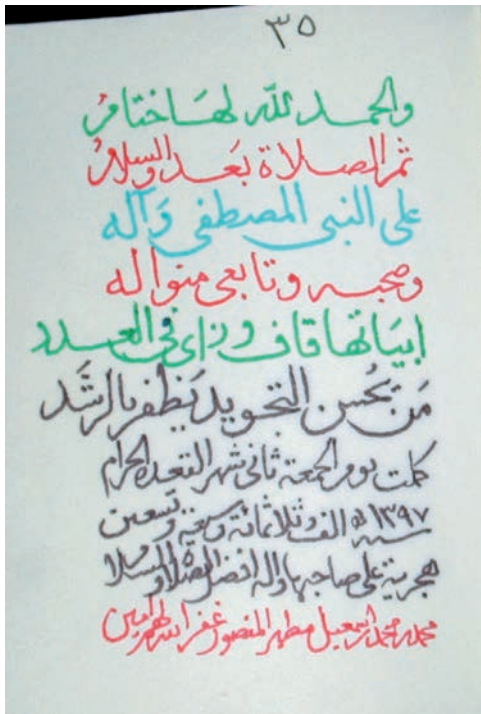 ٣٥
والحمد لله لها ختام
ثم الصلاة بعد والسلام
على النبي المصطفى وآله
وصحبه وتابعى منواله
ابياتها قاف وزاى فى العدد
من يحسن التجويد يظفر بالرشد
كملت يوم الجمعة ثانى شهر القعدة الحرام
سنة ١٣٩٧ ه الف وثلاثمائة وسبعة وتسعين
هجرية على صاحبها وآله افضل الصلاة والسلام
محمد محمد اسمعيل مطهر المنصور غفر الله لهم امين